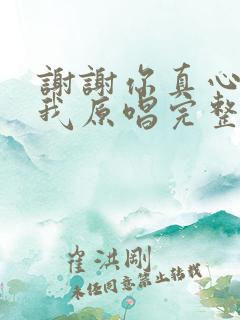 謝謝你真心
我原唱完整
崔洪剛
未经同意禁止转载